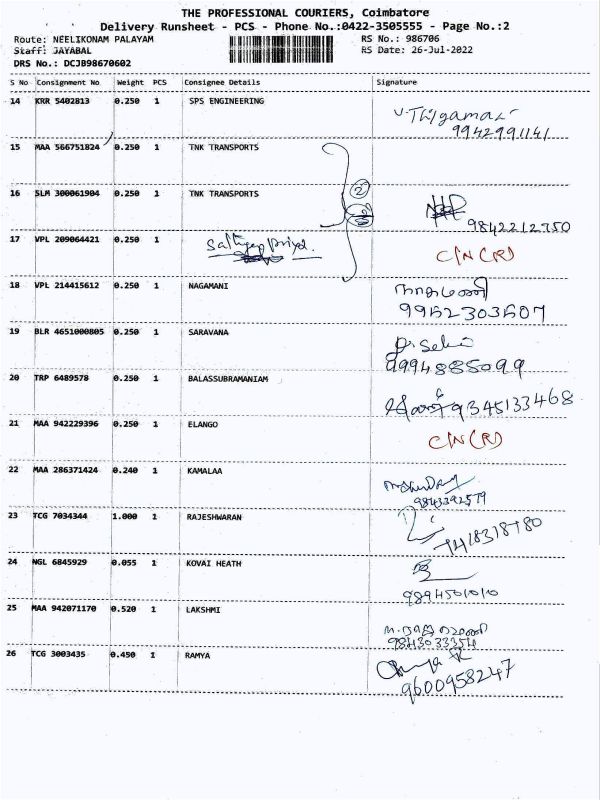 THE PROFESSIONAL COURIERS, Coimbatore
Delivery Runsheet - PCS - Phone No.:0422-3505555 - Page No.:2
Route: NEELIKONAM PALAYAM RS No.: 986706
Staff: JAYABAL RS Date: 26-Jul-2022
DRS No.: DCJB98670602
S No Consignment No Weight PCS Consignee Details Signature
14 KRR 5402813 0.250 1 SPS ENGINEERING
9942991141
15 MAA 566751824 0.250 1 TNK TRANSPORTS
16 SLM 300061904 0.250 1 TNK TRANSPORTS 2
9842212750
17 VPL 209064421 0.250 1 C/N (R)
18 VPL 214415612 0.250 1 NAGAMANI நாகமணி
9952303507
19 BLR 4651000805 0.250 1 SARAVANA
9994885099
20 TRP 6489578 0.250 1 BALASSUBRAMANIAM 9345133468
21 MAA 942229396 0.250 1 ELANGO C/N (R)
22 MAA 286371424 0.240 1 KAMALAA
9843392579
23 TCG 7034344 1.000 1 RAJESHWARAN
24 NGL 6845929 0.055 1 KOVAI HEATH
9894501010
25 MAA 942071170 0.520 1 LAKSHMI
9843033354
26 TCG 3003435 0.450 1 RAMYA
9600958247